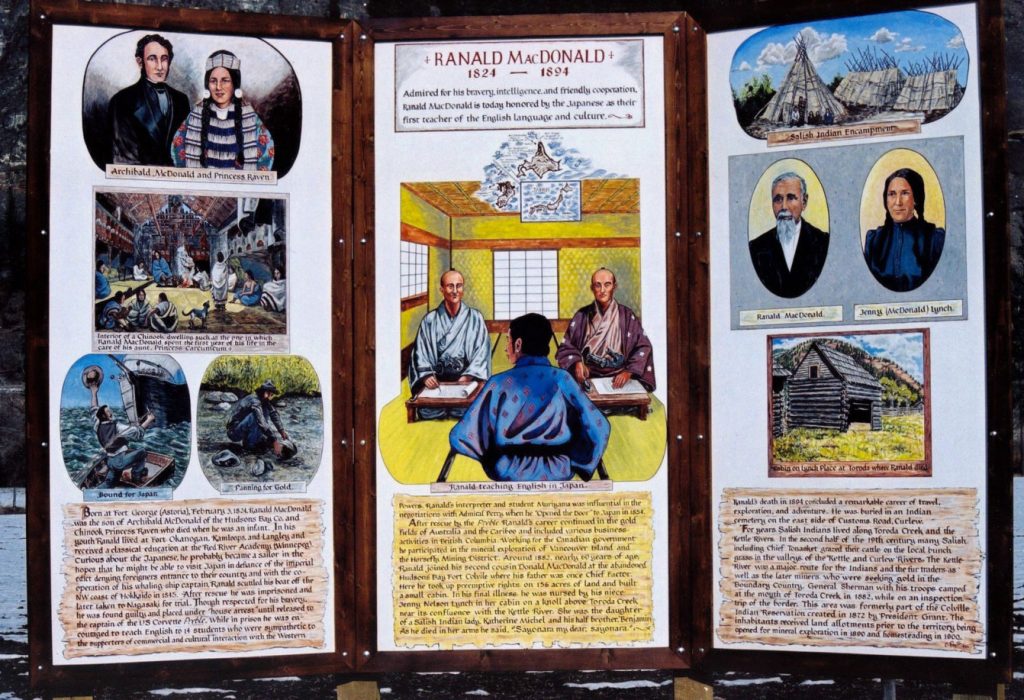 Archibald McDonald and Princess Raven
Interior of a Chinook dwelling such as the one in which
Ranald MacDonald spent the first year of his life in the
care of his aunt, Princess Carcumcum
Bound for Japan
Panning for Gold
Born at Fort George (Astoria), February 3, 1824, Ranald MacDonald
was the son of Archibald McDonald of the Hudsons Bay Co. and
Chinook Princess Raven who died when he was an infant. In his
youth Ranald lived at Fort Okanogan, Kamloops, and Langley and
received a classical education at the Red River Academy (Winnipeg).
Curious about the Japanese, he probably became a sailor in the
hopes that he might be able to visit Japan in defiance of the imperial
edict denying foreigners entrance to their country and with the co-
operation of his whaling ship captain, Ranald scuttled his boat off the
NW coast of Hokkaido in 1848. After rescue he was imprisoned and
later taken to Nagasaki for trial. Though respected for his bravery,
he was found guilty and placed under "house arrest" until released to
the captain of the US Corvette Preble. While in prison he was en-
couraged to teach English to 14 students who were sympathetic to
the supporters of commercial and cultural interaction with the Western
RANALD MACDONALD
1824 — 1894
Admired for his bravery, intelligence, and friendly cooperation,
Ranald MacDonald is today honored by the Japanese as their
first teacher of the English language and culture.
JAPAN
Ranald teaching English in Japan
Powers. Ranald's interpreter and student Muriyama was influential in the
negotiations with Admiral Perry when he "Opened the Door" to Japan in 1854.
After rescue by the Preble Ranald's career continued in the gold
fields of Australia and the Cariboo and included various business
activities in British Columbia. Working for the Canadian government
he participated in the mineral exploration of Vancouver Island and
the Horsefly Mining District. Around 1882, nearly 60 years of age,
Ranald joined his second cousin Donald MacDonald at the abandoned
Hudsons Bay Fort Colvile where his father was once Chief Factor.
Here he took up preemptive rights on 156 acres of land and built
a small cabin. In his final illness he was nursed by his niece
Jenny Nelson Lynch in her cabin on a knoll above Toroda Creek
near its confluence with the Kettle River. She was the daughter
of a Salish Indian lady, Katherine Michel and his half brother, Benjamin.
As he died in her arms he said, "Sayonara my dear, sayonara."
Salish Indian Encampment
Ranald MacDonald
Jenny (McDonald) Lynch
Cabin on Lynch Place at Toroda where Ranald died
Ranald's death in 1894 concluded a remarkable career of travel,
exploration, and adventure. He was buried in an Indian
cemetery on the east side of Customs Road, Curlew.
For years Salish Indians lived along Toroda Creek and the
Kettle Rivers. In the second half of the 19th century many Salish,
including Chief Tonasket grazed their cattle on the local bunch
grass in the valleys of the Kettle and Curlew Rivers. The Kettle
River was a major route for the Indians and the fur traders as
well as the later miners who were seeking gold in the
Boundary Country. General Sherman with his troops camped
at the mouth of Toroda Creek in 1882, while on an inspection
trip of the border. This area was formerly part of the Colville
Indian Reservation created in 1872 by President Grant. The
inhabitants received land allotments prior to the territory being
opened for mineral exploration in 1890 and homesteading in 1900.